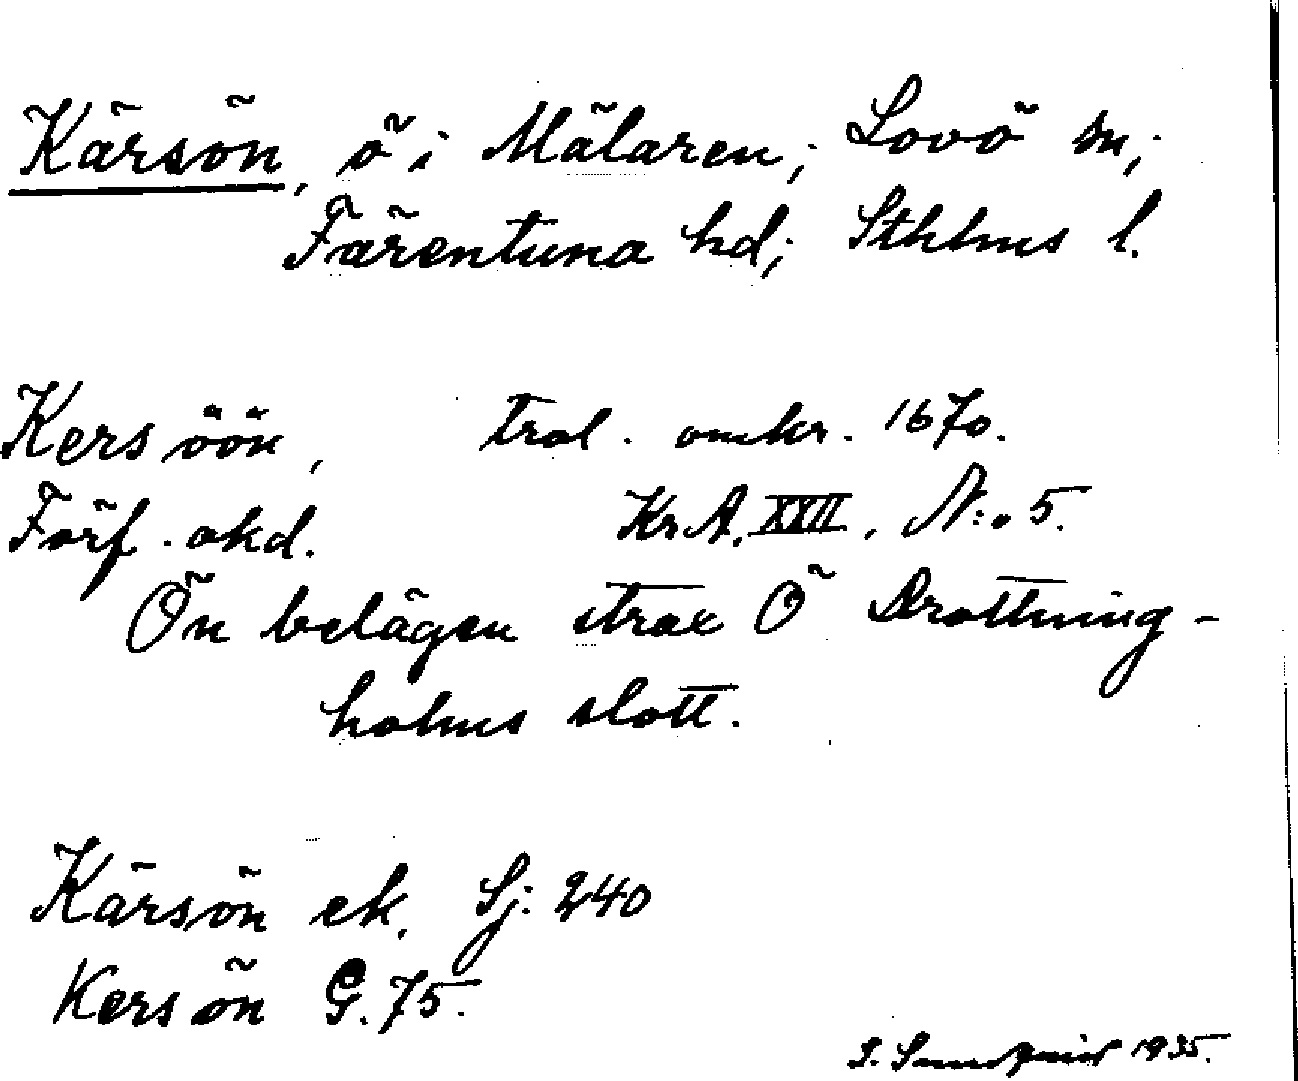 Kärsön, ö i Mälaren; Lovö sn;
Färentuna hd; Sthlms l.
Kers öön, trol. omkr. 1670.
Förf. okd. Kr.A. XXII, N:o 5.
Ön belägen strax Ö Drottning-
holms slott.
Kärsön ek. Sj: 240
Kersön G. 75.
S. Sundqvist 1935.